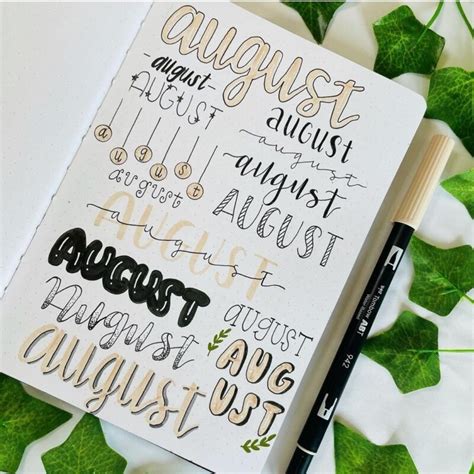 august
august
AUGUST
august
august
august
august
august
AUGUST
AUGUST
august
AUGUST
August
AUGUST
august
AUG
UST
Tombow ABT
942